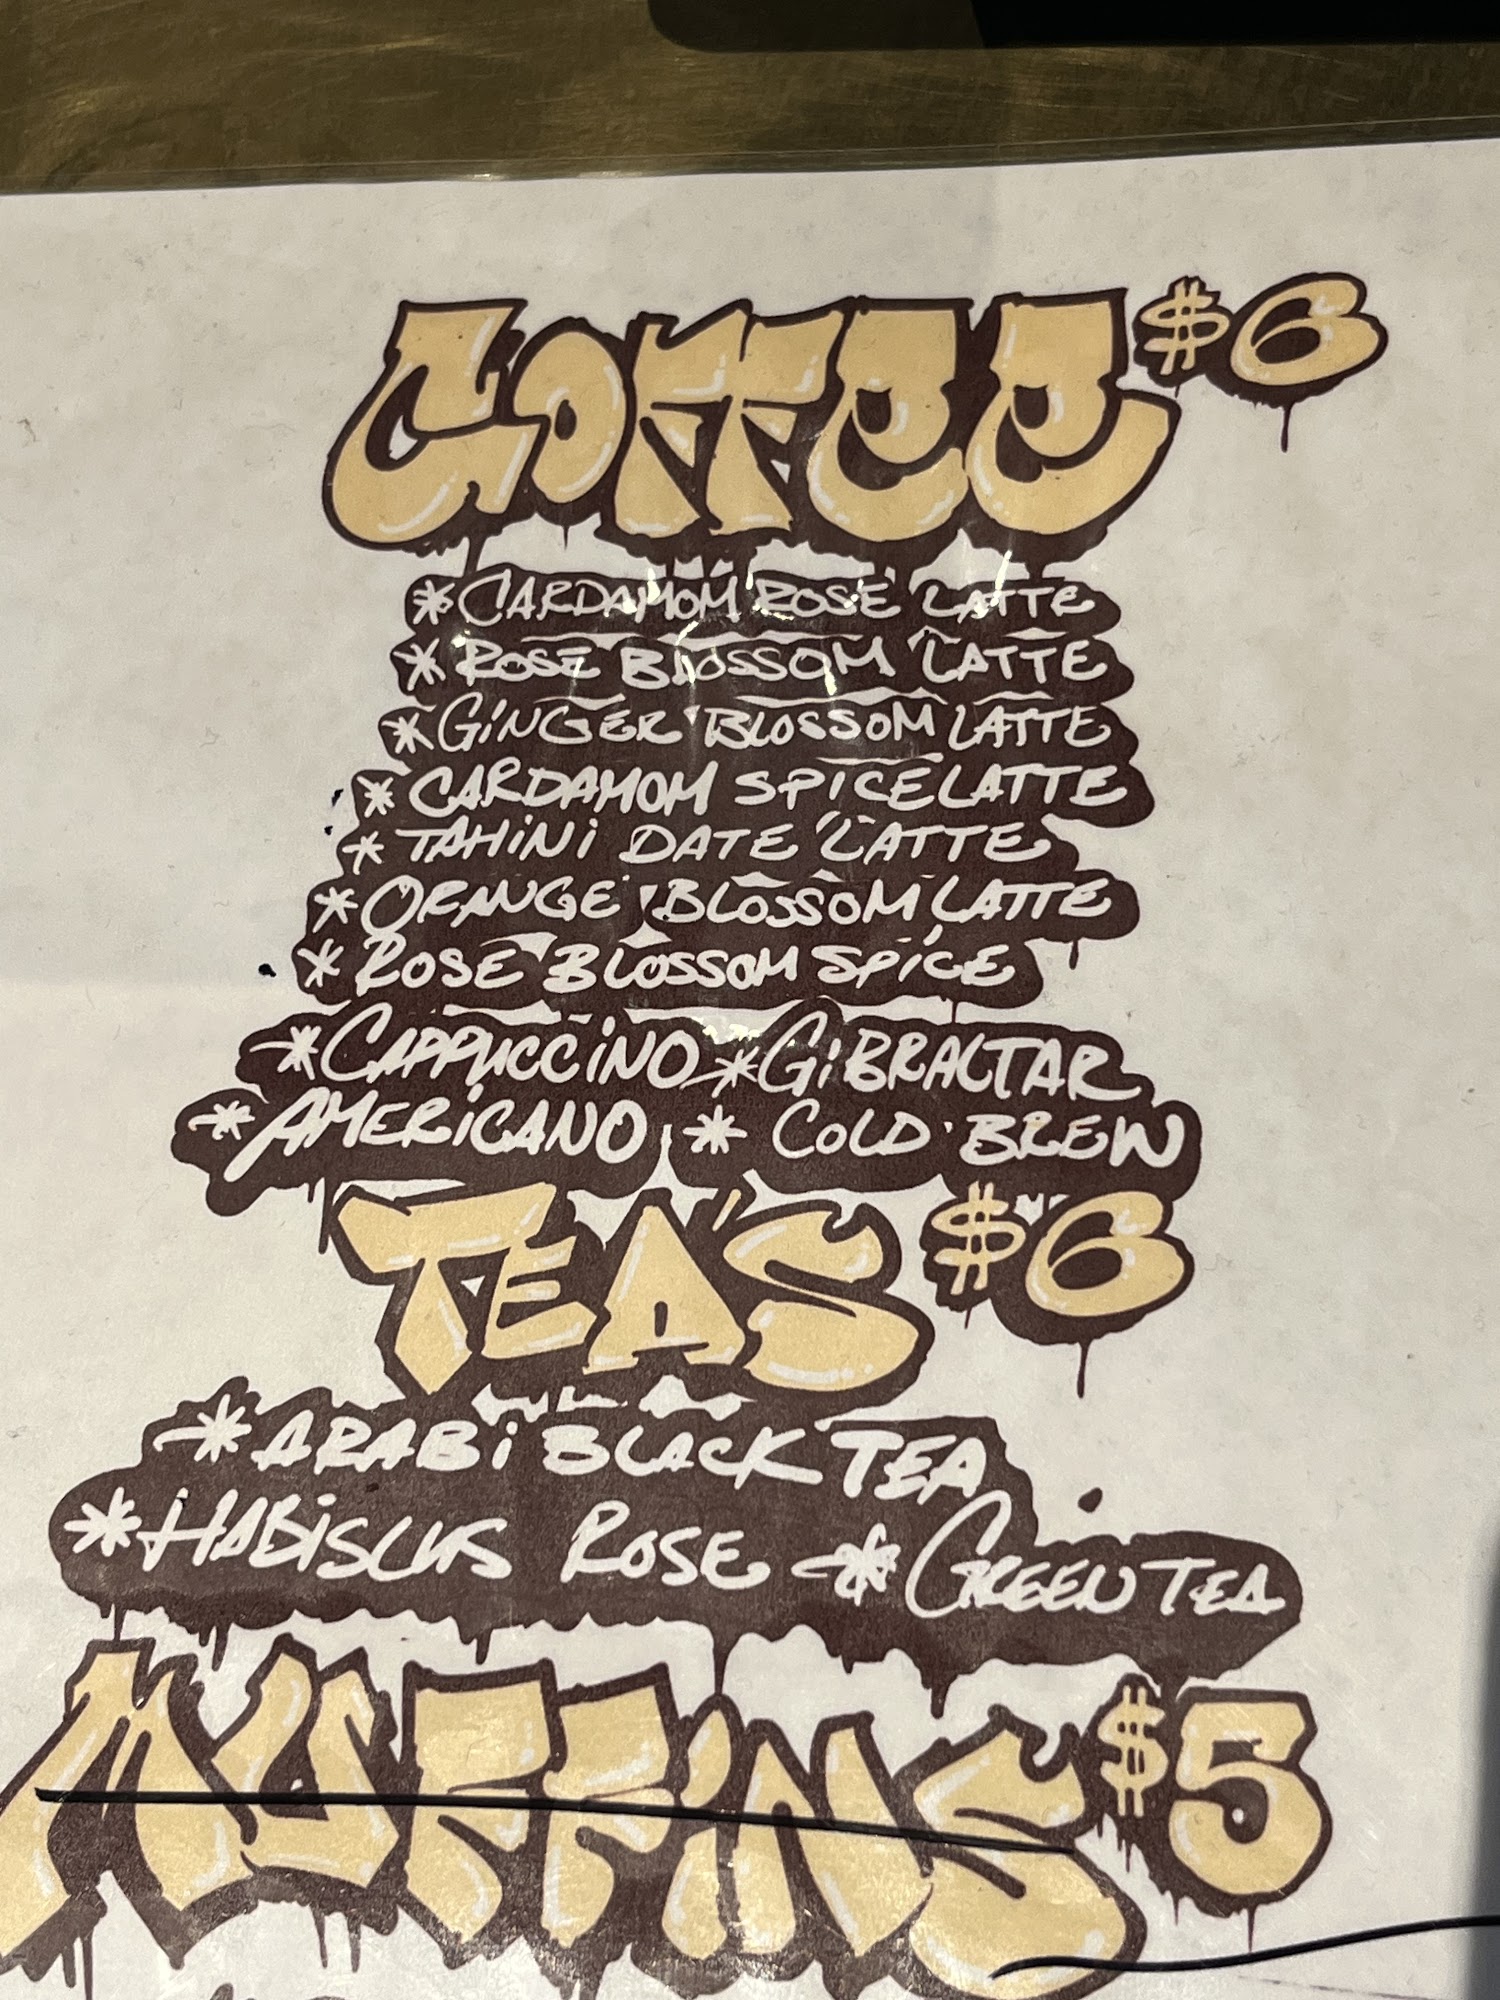 COFFEE $6
* CARDAMOM ROSE LATTE
* ROSE BLOSSOM LATTE
* GINGER BLOSSOM LATTE
* CARDAMOM SPICE LATTE
* TAHINI DATE LATTE
* ORANGE BLOSSOM LATTE
* ROSE BLOSSOM SPICE
* CAPPUCCINO * GIBRALTAR
* AMERICANO * COLD BREW
TEA'S $6
* ARABI BLACK TEA
* HABISCUS ROSE * GREEN TEA
MUFFINS $5